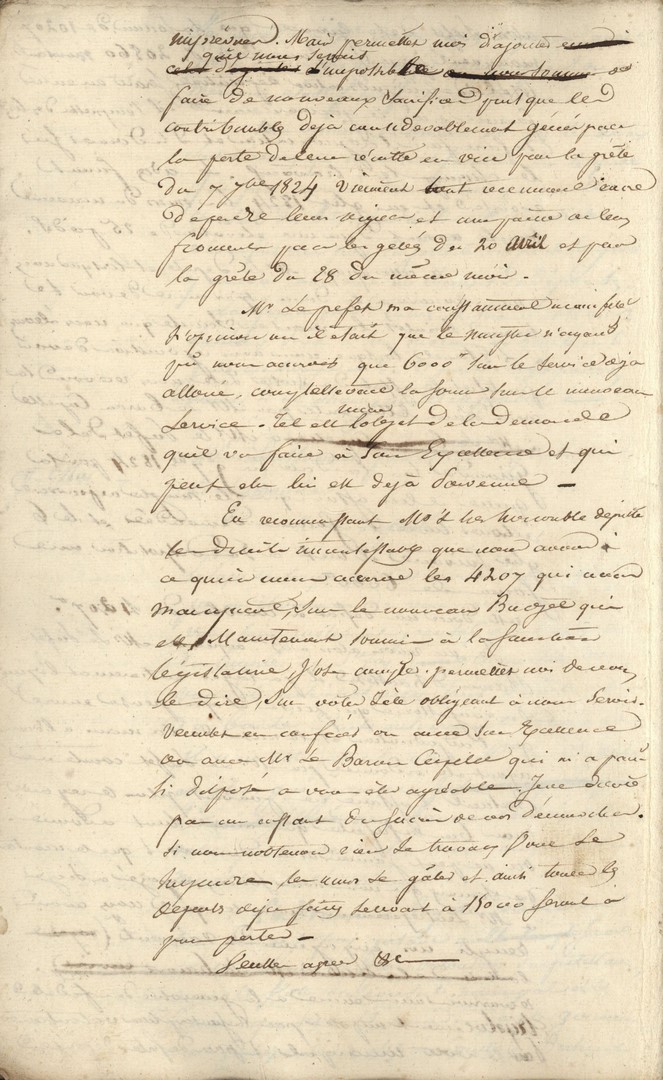 imprévues. Mais permettez moi d'ajouter
qu'il nous serait
impossible de
faire de nouveaux sacrifices puisque les
contribuables déjà considérablement génés par
la perte de leur récolte en vin par la grêle
du 7 7bre 1824 viennent tout récemment encore
de perdre leurs vignes et une partie de leurs
froments par les gelées du 20 avril et par
la grêle du 28 du même mois.
Mr Le prefet m'a constamment manifesté
l'opinion où il était que le ministre n'ayant
pû nous accorder que 6000 sur le service déja
alloué, completterait la somme sur le nouveau
service. Tel est l'objet de la demande
qu'il va faire à Son Excellence et qui
peut etre lui est dejà parvenue —
En reconnaissant Mr honorable député
les droits incontestables que nous avons à
ce qu'on nous accorde les 4207 qui nous
manquent, sur le nouveau Budget qui
est Maintenant soumis à la sanction
législative, j'ose compter permettez moi de vous
le dire, sur votre zèle obligeant à nous servir.
Veuillez en conférer ou avec Son Excellence
ou avec Mr Le Baron Capelle qui m'a paru
si disposé a vous être agréable. Je ne doute
pas un instant du succès de vos démarches.
Si nous n'obtenons rien le travail
les murs se gâter et ainsi toutes les
déports déja faits à 15000 seront à
pure perte —
Veuillez agréer &c